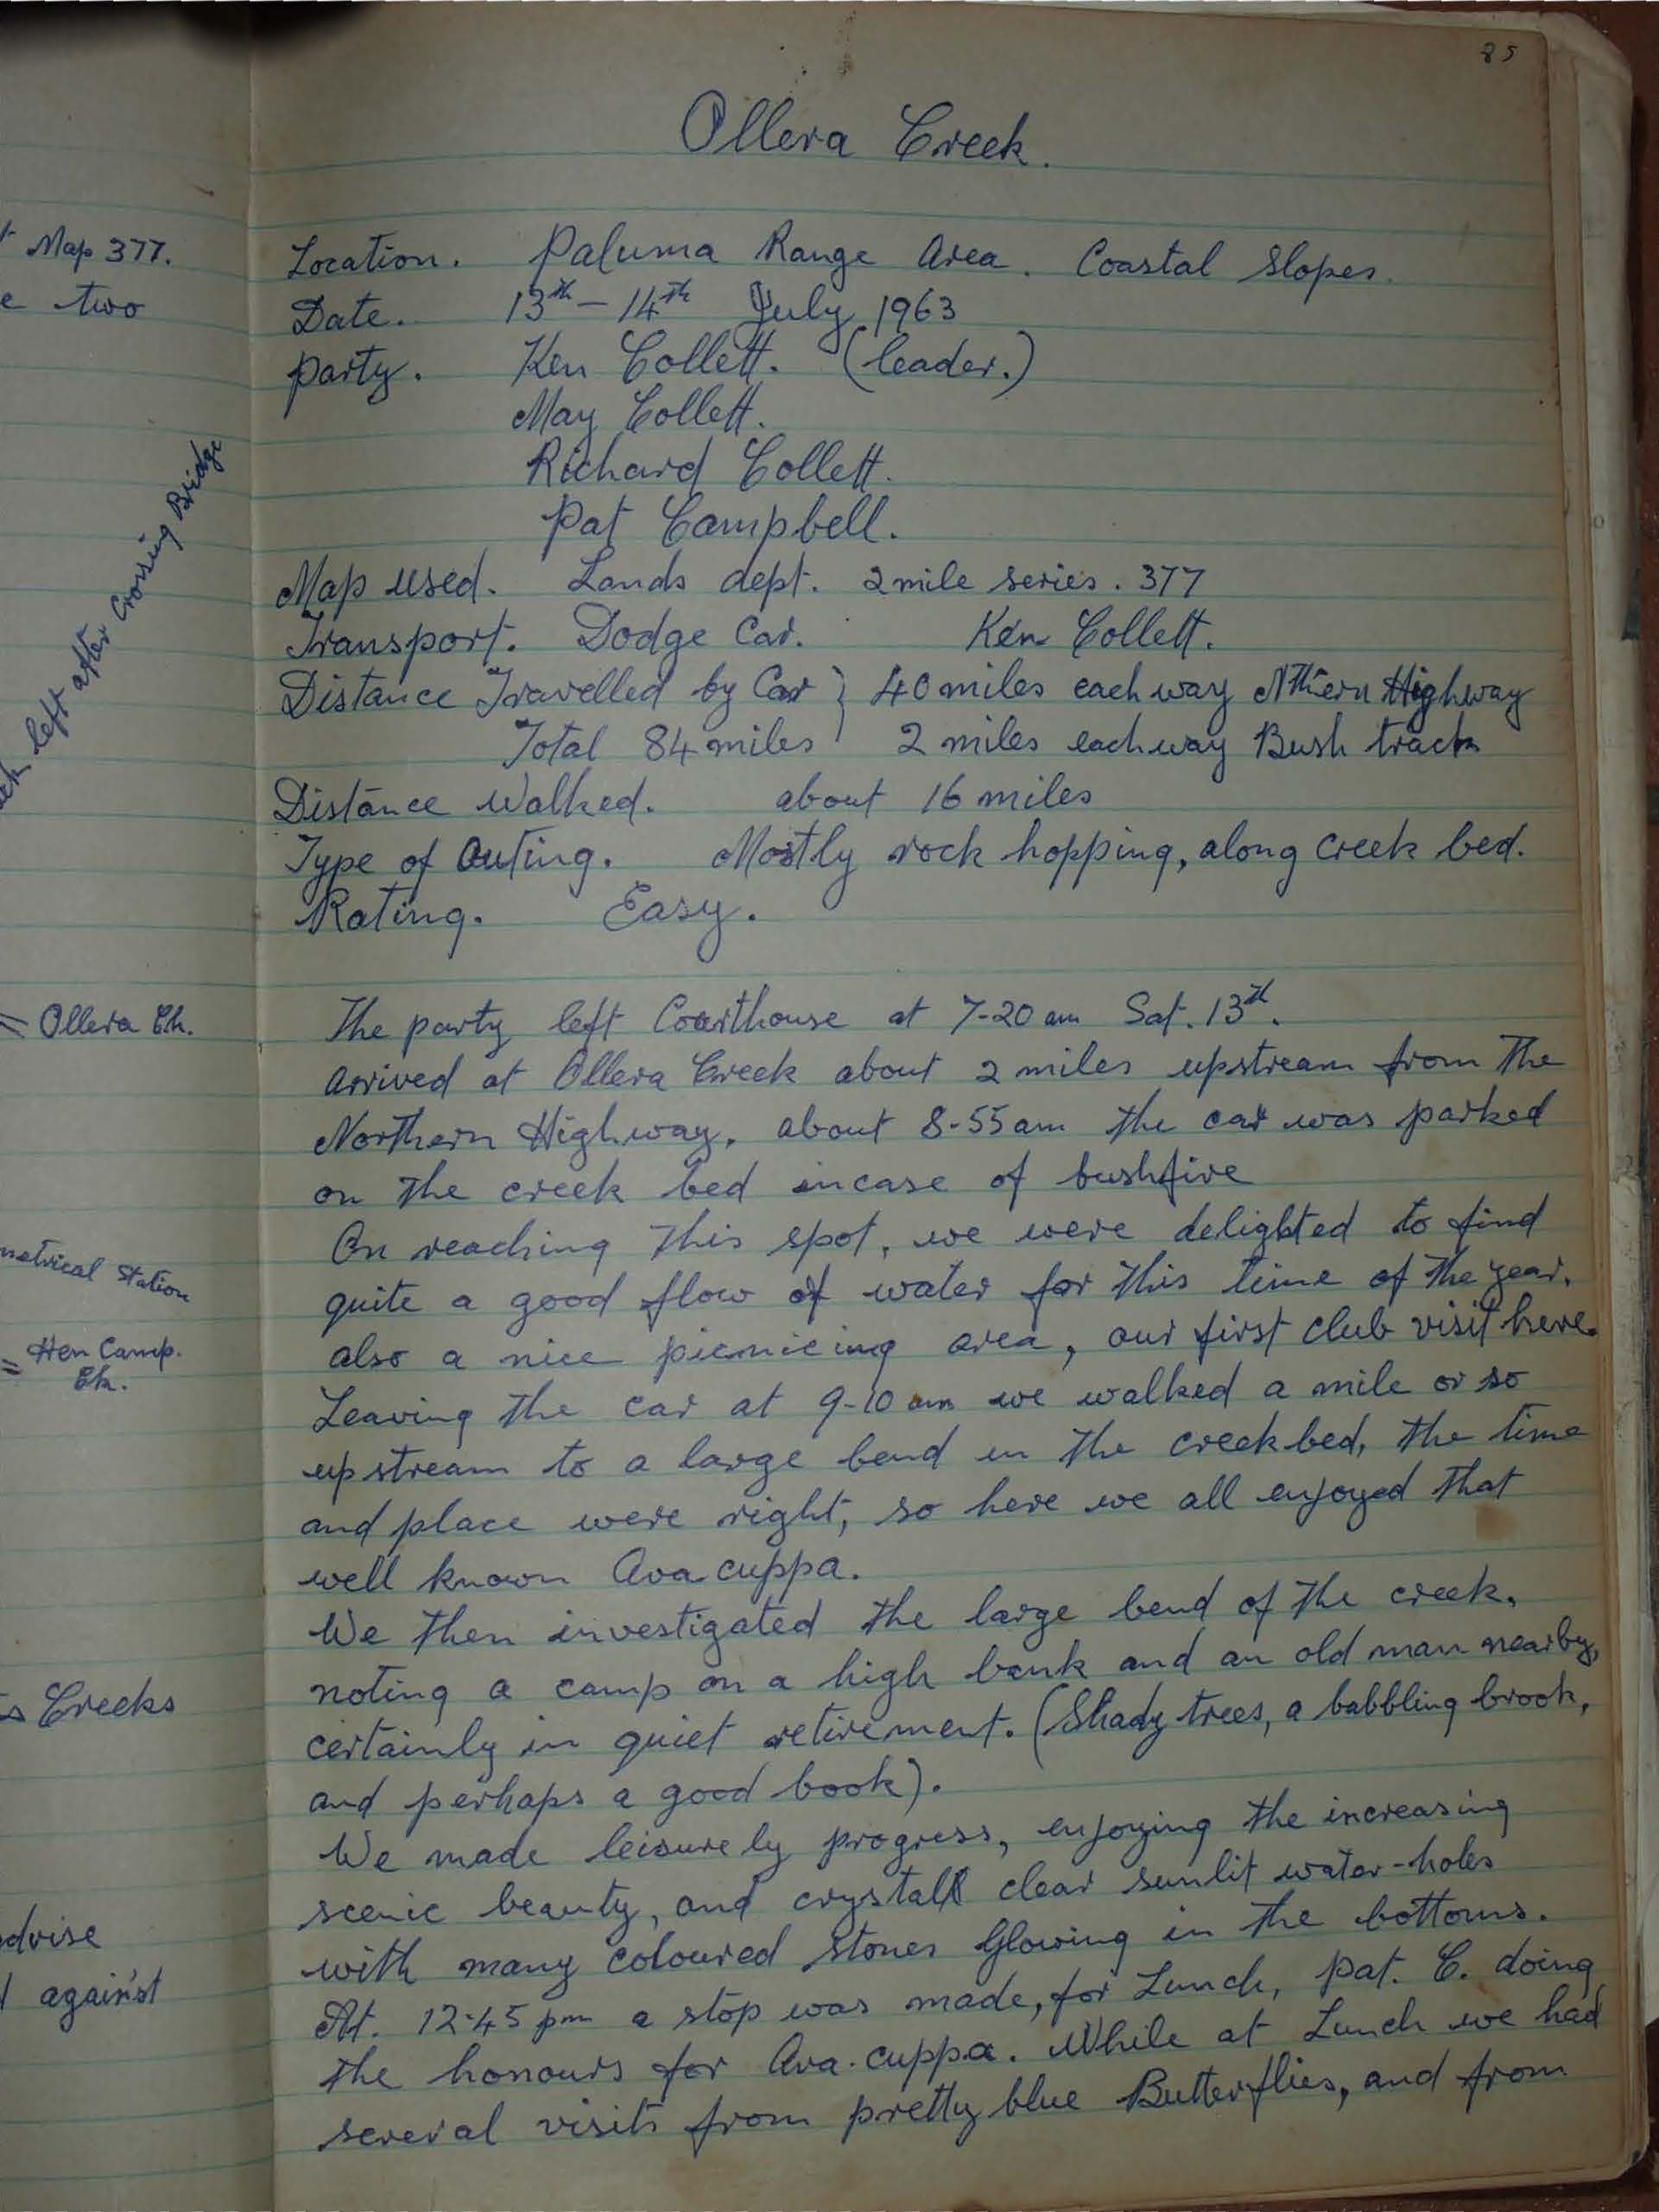 Map 377.
e two
left after Crossing Bridge
= Ollera Ck.
metrical Station
= Hen Camp.
Ck.
s Creeks
dvise
against
85
Ollera Creek.
Location. Paluma Range Area. Coastal Slopes.
Date. 13th – 14th July 1963
Party. Ken Collett. (leader.)
May Collett.
Richard Collett.
Pat Campbell.
Map used. Lands dept. 2 mile series. 377
Transport. Dodge Car. Ken Collett.
Distance Travelled by Car } 40 miles each way Nthern Highway
Total 84 miles 2 miles each way Bush track
Distance Walked. about 16 miles
Type of Outing. Mostly rock hopping, along creek bed.
Rating. Easy.
The party left Courthouse at 7-20 am Sat. 13th.
arrived at Ollera Creek about 2 miles upstream from the
Northern Highway, about 8-55 am the car was parked
on the creek bed incase of bushfire
On reaching this spot, we were delighted to find
quite a good flow of water for this time of the year,
also a nice picnicing area, our first club visit here.
Leaving the car at 9-10 am we walked a mile or so
upstream to a large bend in the creekbed, the time
and place were right, so here we all enjoyed that
well known Ava cuppa.
We then investigated the large bend of the creek,
noting a camp on a high bank and an old man nearby,
certainly in quiet retirement. (Shady trees, a babbling brook,
and perhaps a good book).
We made leisurely progress, enjoying the increasing
scenic beauty, and crystall clear sunlit water-holes
with many coloured stones Glowing in the bottoms.
At. 12.45 pm a stop was made, for Lunch, Pat. C. doing
the honours for Ava. cuppa. While at Lunch we had
several visits from pretty blue Butterflies, and from